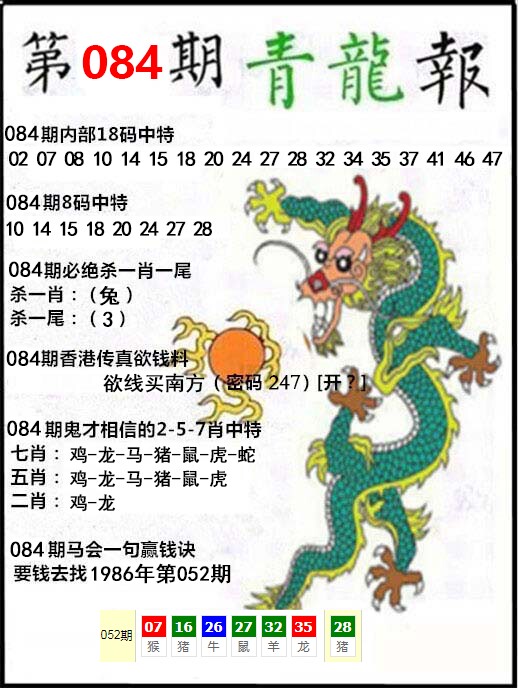 第084期 青龍報
084期内部18码中特
02 07 08 10 14 15 18 20 24 27 28 32 34 35 37 41 46 47
084期8码中特
10 14 15 18 20 24 27 28
084期必绝杀一肖一尾
杀一肖：（兔）
杀一尾：（3）
084期香港传真欲钱料
欲线买南方（密码 247）[开？]
084期鬼才相信的2-5-7肖中特
七肖：鸡-龙-马-猪-鼠-虎-蛇
五肖：鸡-龙-马-猪-鼠-虎
二肖：鸡-龙
084期马会一句赢钱诀
要钱去找1986年第052期
052期 07 16 26 27 32 35 28
猴 猪 牛 鼠 羊 龙 猪